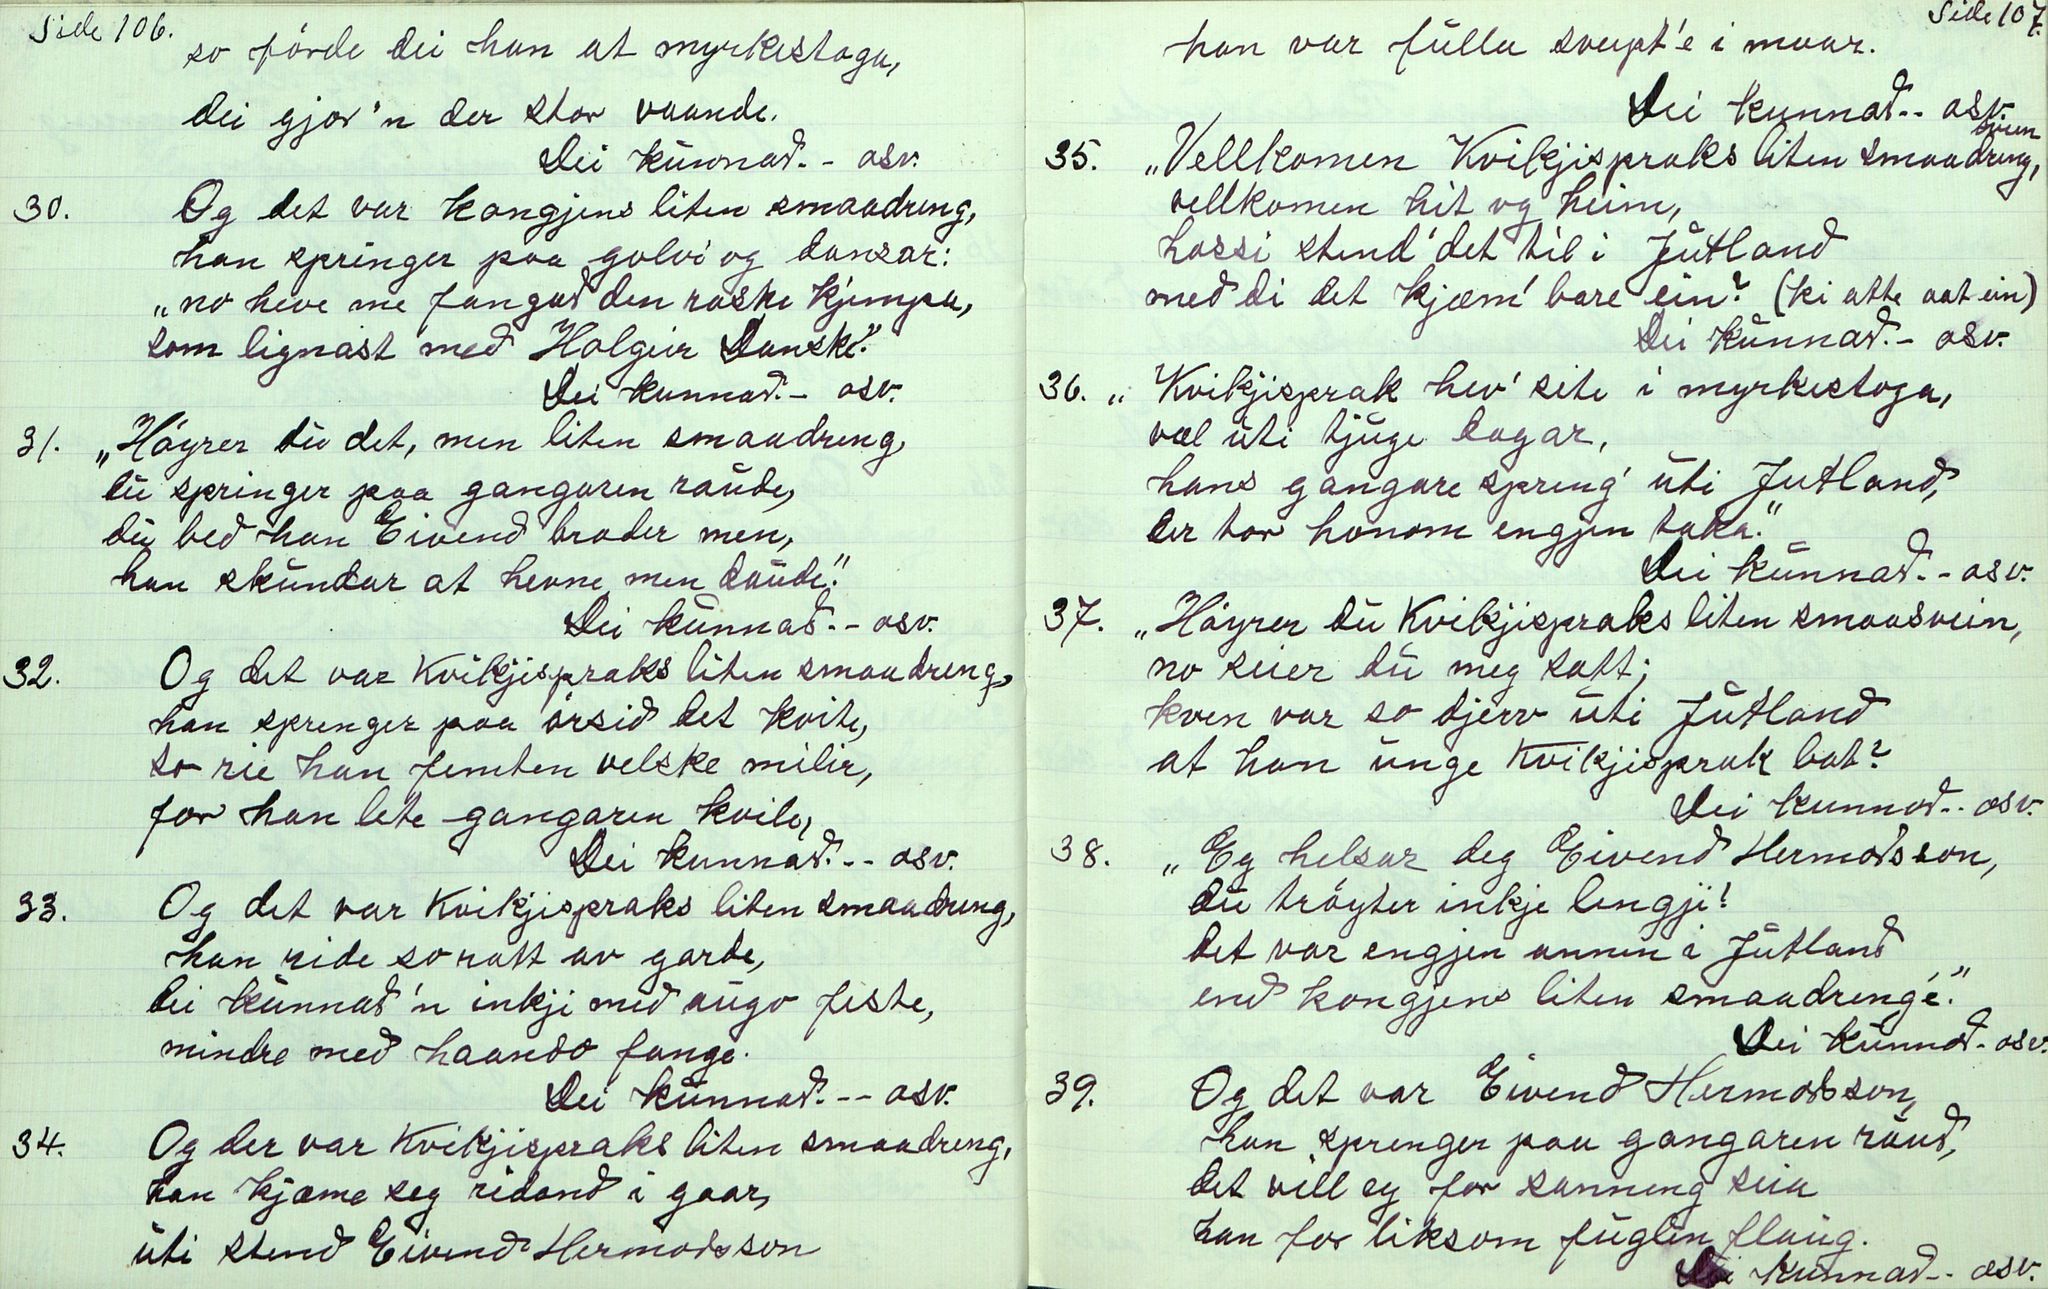 Side 106.
so förde dei han at myrkestoga,
dei gjor'n der stor vaande.
Dei kunnað. - osv.
30. Og det var kongjens liten smaadreng,
han springer paa golvi og dansar:
„no heve me fangað den raske kjempa,
som lignast með Holgeir Danske."
Dei kunnað. - osv.
31. „Höyrer du det, men liten smaadreng,
du springer paa gangaren raude,
du beð han Eivend broder men,
han skundar at hevne men daude."
Dei kunnað. - osv.
32. Og det var Kvikjispraks liten smaadreng,
han sprenger paa örsið det kvite,
so rie han femten velske milir,
for han lete gangaren kvile,
Dei kunnað. - - osv.
33. Og det var Kvikjispraks liten smaadreng,
han ride so ratt av garde,
dei kunnað'n inkji með augo feste,
mindre með haando fange.
Dei kunnað. - - osv.
34. Og der var Kvikjispraks liten smaadreng,
han kjæme seg ridand i gaar,
uti stend Eivend Hermodsson
Side 107.
han var fulla sveipt'e i maar.
Dei kunnað. - osv.
svein
35. „Vellkomen Kvikjispraks liten smaadreng,
vellkomen hit og heim,
hossi stend' det til i Jutland
með di det kjæm' bare ein? (ki atte aat ein)
Dei kunnað. - osv.
36. „Kvikjisprak hev' site i myrkestoga,
væl uti tjuge dagar,
hans gangare spreng' uti Jutland,
der tor honom engjen taka."
Dei kunnað. - osv.
37. „Höyrer du Kvikjispraks liten smaasvein,
no seier du meg satt;
kven var so djerv uti Jutland
at han unge Kvikjisprak bat?
Dei kunnað. - osv.
38. „Eg helsar deg Eivend Hermodsson,
du tröyter inkje lengji!
det var engjen annen i Jutland
end kongjens liten smaadreng'e."
Dei kunnað - osv.
39. Og det var Eivend Hermodsson,
han sprenger paa gangaren rauð,
det vill eg for sanneng seia
han for liksom fuglen flaug.
Dei kunnað - - osv.